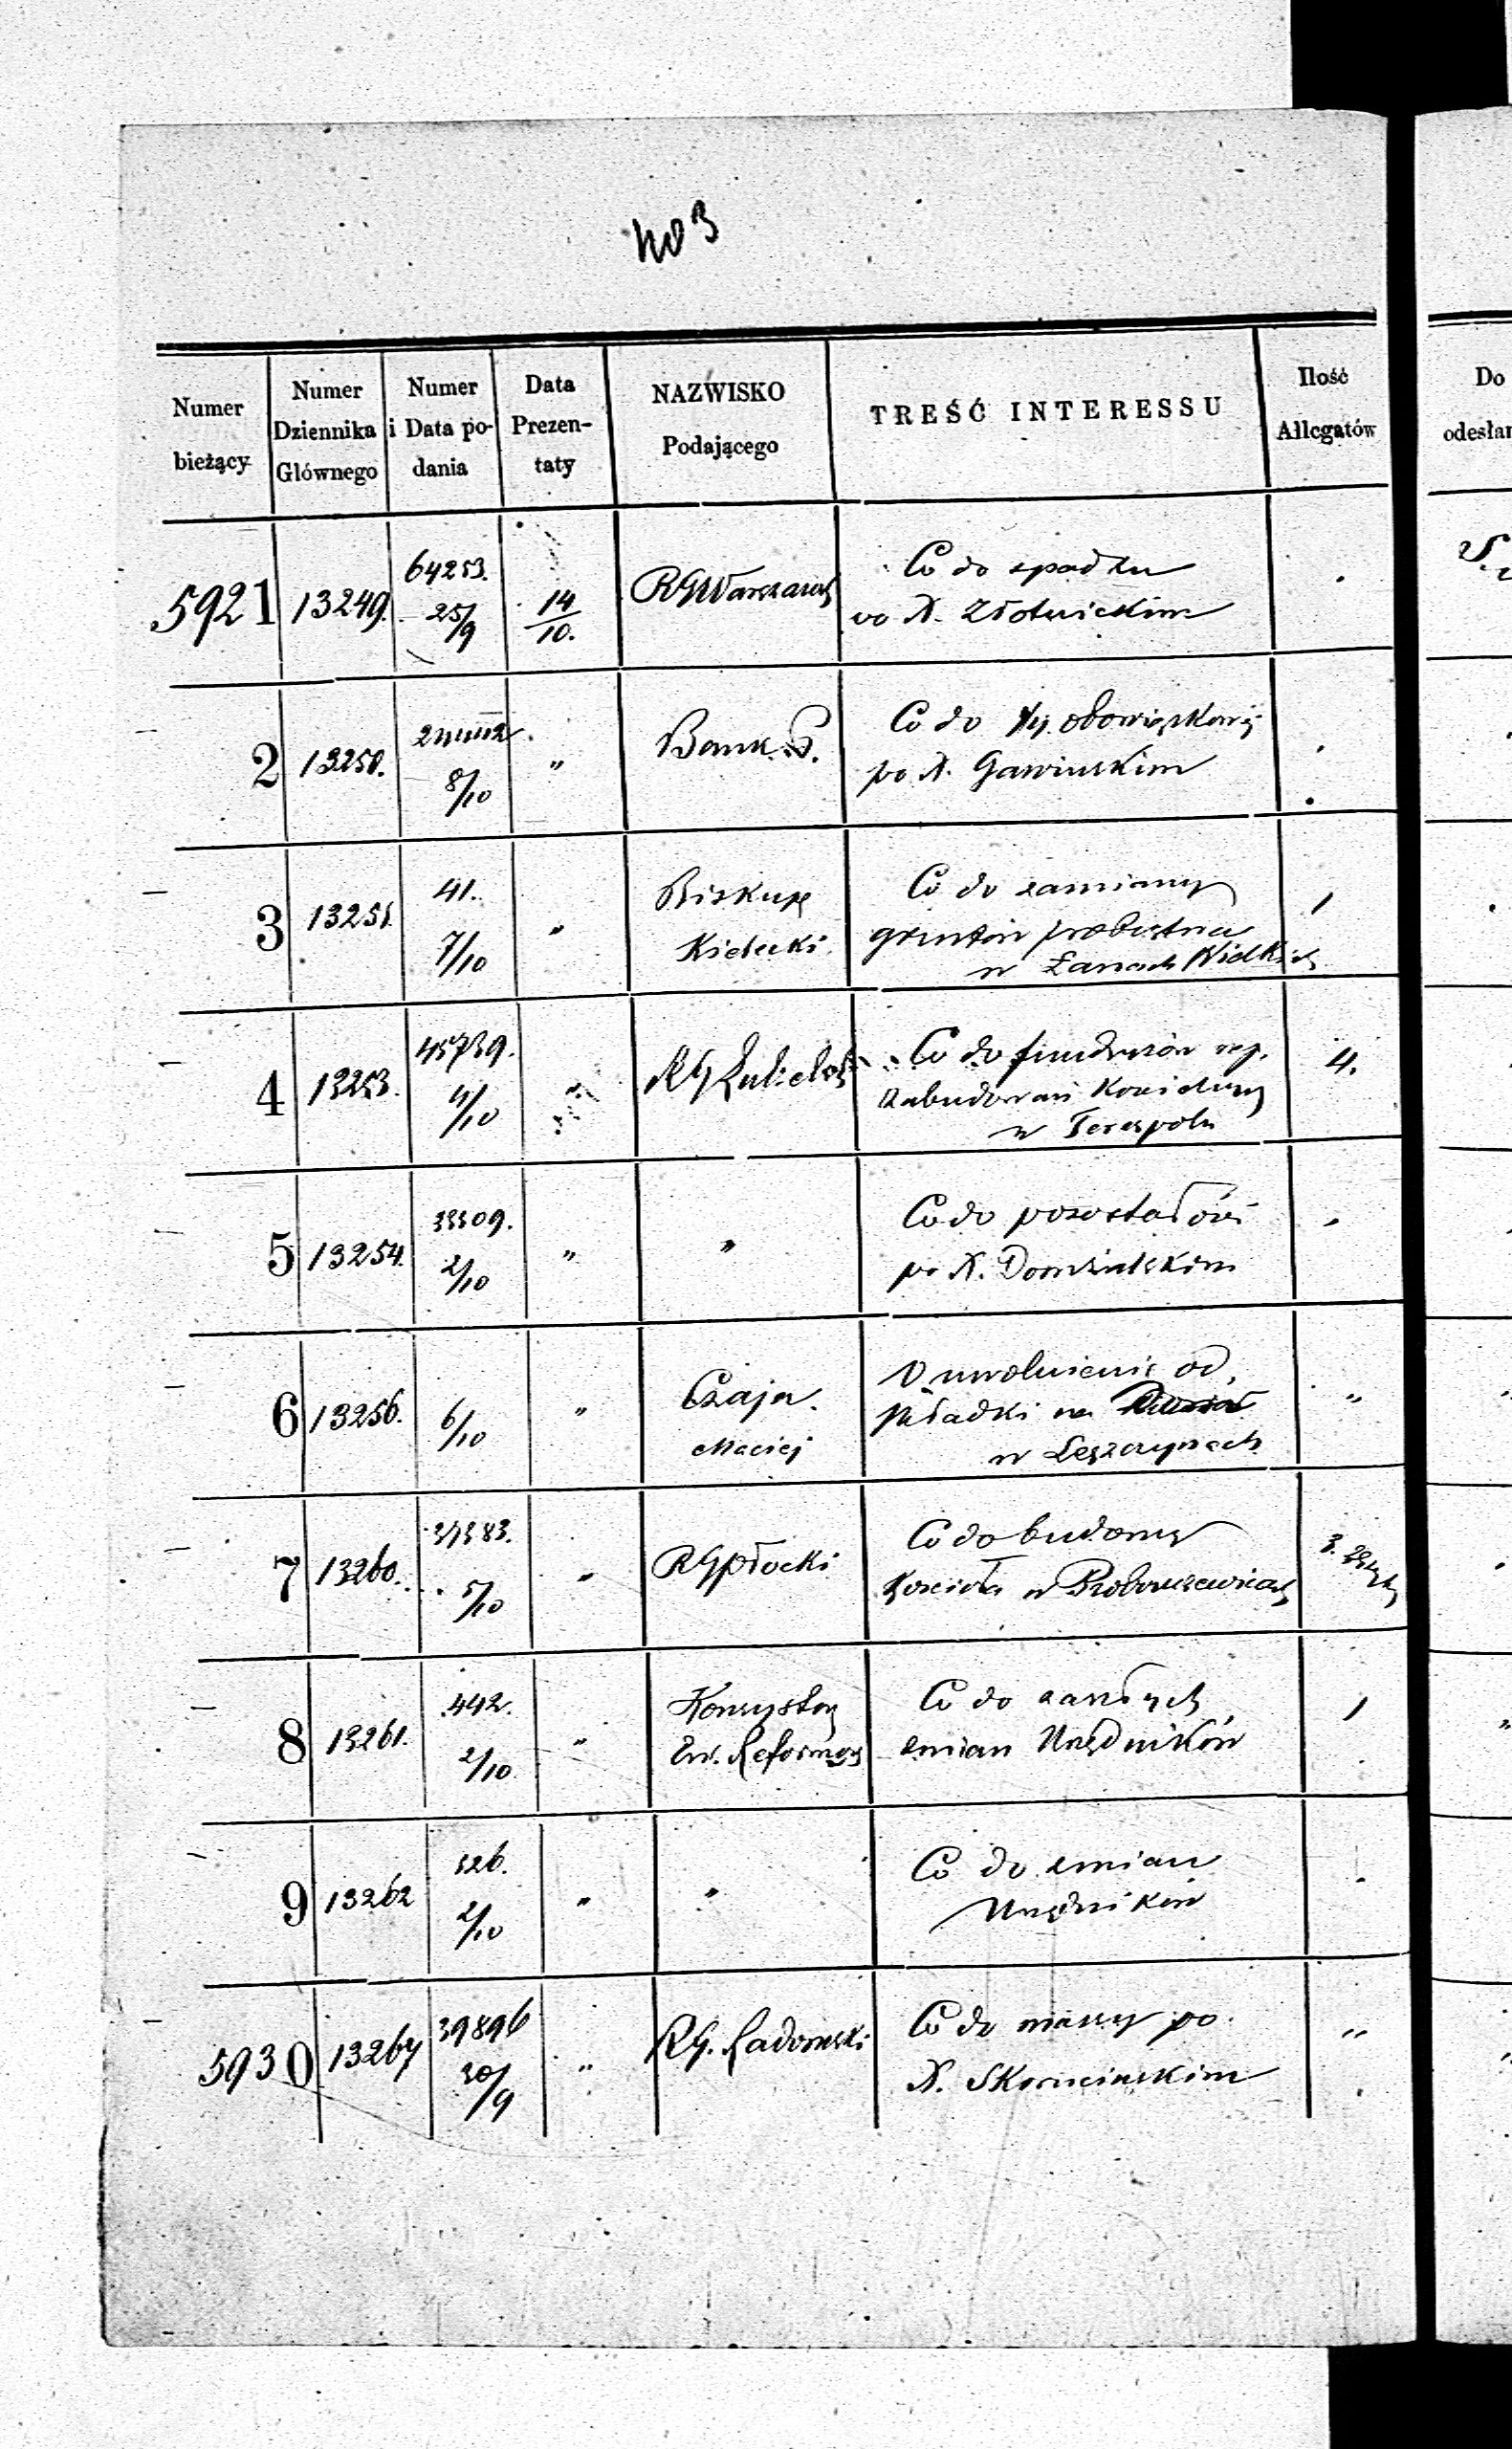 Numer bieżący
Numer Dziennika Głównego
Numer i Data podania
Data Prezentaty
NAZWISKO Podającego
TREŚĆ INTERESSU
Ilość Allegatów
Do
odesłan
5921 13249. 64253. 25/9 14/10. RGWarszawsk Co do spadku
po X. Złotnickim
2 13250. 8/10 " Bank P. Co do obowiązkowéj
po X. Gawinskim
3 13251. 41. 7/10 " Biskup Kielecki Co do zamiany 1
gruntów probostwa
w Łanach Wielkich
4 13253. 45739. 4/10 " RGLubelski Co do funduszów rep. 4.
zabudowań Kościelnych
w Terespolu
5 13254. 33309. 2/10 " " Co do pozostałości "
po X.
6 13256. 6/10 " Czaja Maciej O uwolnienie od "
składki na
w Leszczynach
7 13260. 5/10 " RGPłocki Co do budowy 3.
Kościoła w Proboszczewicach
8 13261. 442. 2/10 " Konsystorz Ew. Reformow Co do zaszłych 1
zmian Urzędników
9 13262 326. 2/10 " " Co do zmian
Urzędników
5930 13264 39896 30/9 " RG. Radomski Co do massy po "
X. Skornicinskim